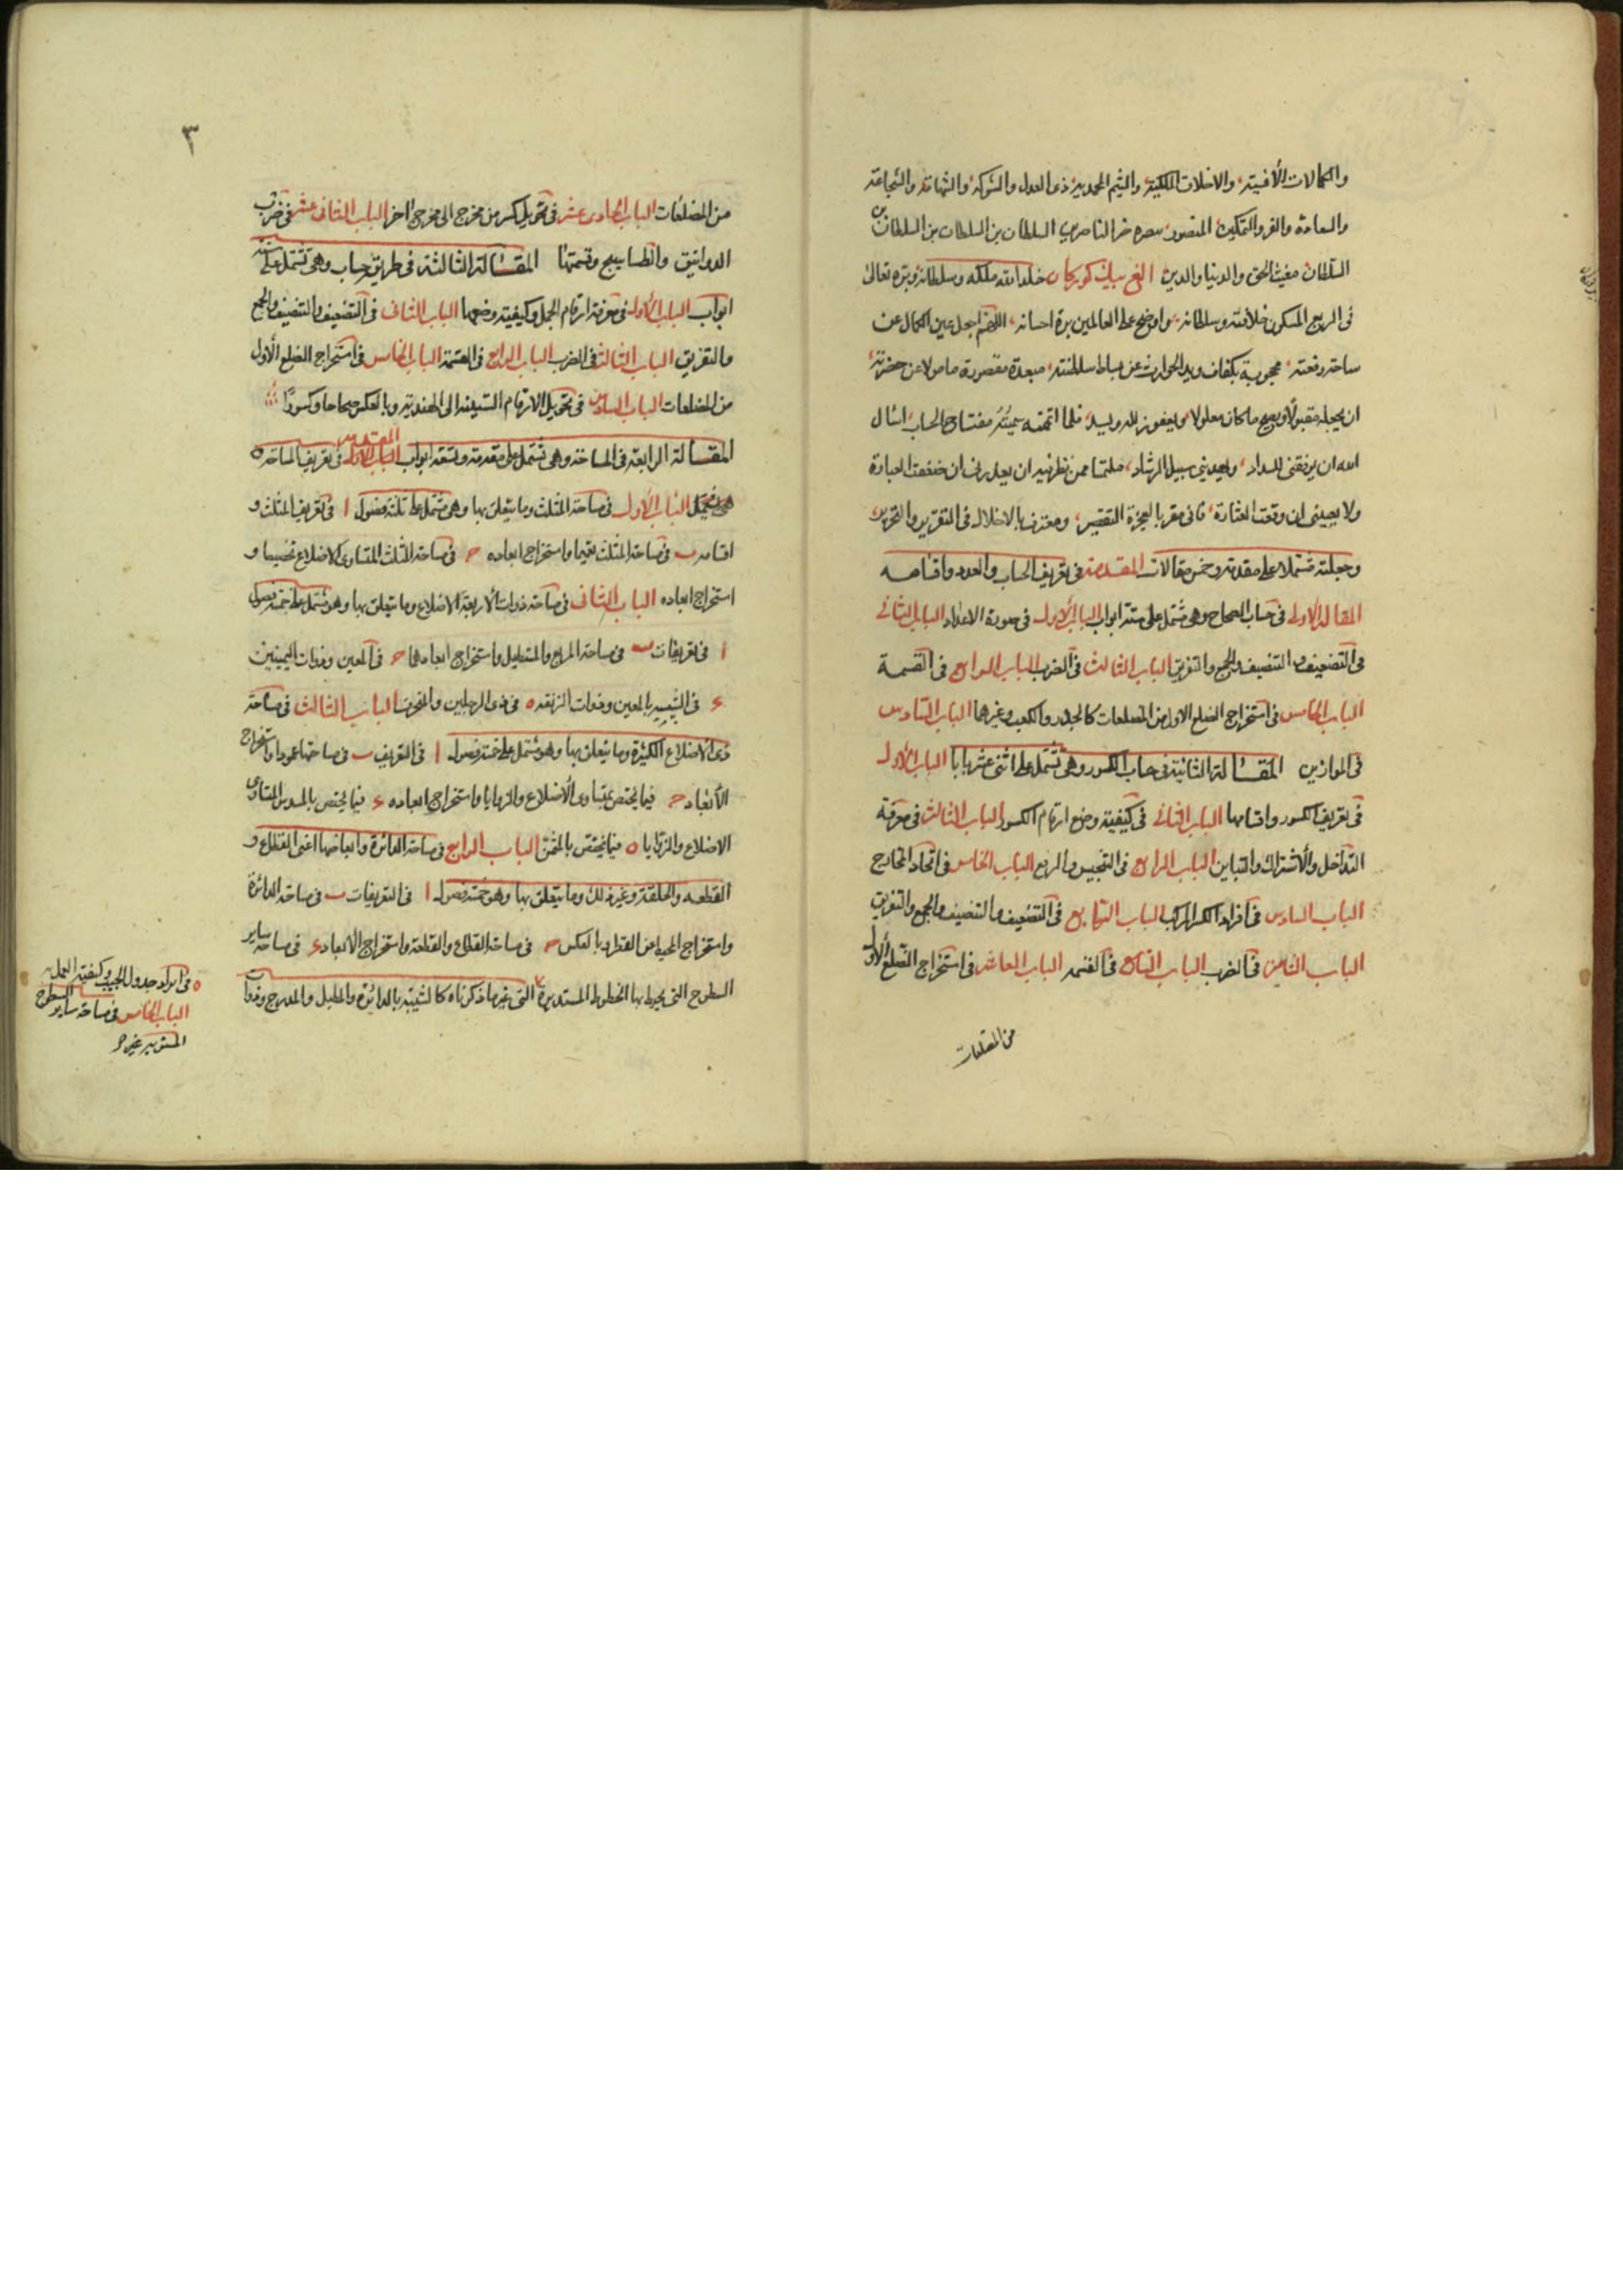 والكمالات الأنسية والاخلاق الملكية والشيم المحمدية ذى العدل والشوكة والشهامة والشجاعة
والسعادة والعز والتمكين المنصور بنصرة خير الناصرين السلطان بن السلطان بن السلطان
السلطان مغيث الحق والدنيا والدين الغ بيك كوركان خلد الله ملكه وسلطانه وبره تعالى
فى الربع المسكون خلافته وسلطانه واوضح على العالمين بره احسانه اللهم اجعل عين الكمال عن
ساحة رفعته محجوبة بكفاف ويد الحوادث عن بساط سلطنته مبعدة مقصورة مامولا عن حضرته
ان يجعله مقبولا ويصح ما كان معلولا ويعفو زلله ويسد فلما اتممته سميته مفتاح الحساب اسال
الله ان يوفقنى للسداد ويهدينى سبيل الرشاد ملتمسا ممن نظر فيه ان يعذرنى ان ضعفت العبارة
ولا يعيبنى ان وقعت العثارة فانى مقر بالعجز والتقصير ومعترف بالاخلال فى التقرير والتحرير
وجعلته مشتملا على مقدمة وخمس مقالات المقدمة فى تعريف الحساب والعدد واقسامه
المقالة الاولى فى حساب الصحاح وهى مشتمل على ستة ابواب الباب الاول فى صورة الاعداد الباب الثانى
فى التضعيف والتنصيف والجمع والتفريق الباب الثالث فى الضرب الباب الرابع فى القسمة
الباب الخامس فى استخراج الضلع الاول من المضلعات كالجذر والكعب وغيرهما الباب السادس
فى الموازين المقالة الثانية فى حساب الكسور وهى تشتمل على اثنى عشر بابا الباب الاول
فى تعريف الكسور واقسامها الباب الثانى فى كيفية وضع ارقام الكسور الباب الثالث فى معرفة
التداخل والاشتراك والتباين الباب الرابع فى التجنيس والرفع الباب الخامس فى اتحاد المخارج
الباب السادس فى افراد الكسر المركب الباب السابع فى التضعيف والتنصيف والجمع والتفريق
الباب الثامن فى الضرب الباب التاسع فى القسمة الباب العاشر فى استخراج الضلع الأول
من المضلعات
٣
من المضلعات الباب الحادى عشر فى تحويل كسر من مخرج الى مخرج آخر الباب الثانى عشر فى ضرب
الدوانيق والطساسيج وقسمتها المقالة الثالثة فى طريق حساب وهى تشتمل على ستة
ابواب الباب الأول فى معرفة ارقام الجمل وكيفية وضعها الباب الثانى فى التضعيف والتنصيف والجمع
والتفريق الباب الثالث فى الضرب الباب الرابع فى القسمة الباب الخامس فى استخراج الضلع الأول
من المضلعات الباب السادس فى تحويل الارقام الستينية الى الهندية وبالعكس صحاحا وكسورًا
المقالة الرابعة فى المساحة وهى تشتمل على مقدمة وتسعة ابواب المقدمة فى تعريف المساحة
الباب الأول فى مساحة المثلث وما يتعلق بها وهى مشتمل على ثلثة فصول ا فى تعريف المثلث و
اقسامه ب فى مساحة المثلث تعيما واستخراج ابعاده ح فى مساحة المثلث المتساوى الاضلاع تخصيصا و
استخراج ابعاده الباب الثانى فى مساحة ذوات الأربعة الاضلاع وما يتعلق بها وهو مشتمل على خمسة فصول
ا فى تعريفات ب فى مساحة المربع والمستطيل واستخراج ابعادهما ح فى المعين وذوات اليمينين
ء فى الشبيه بالمعين وذوات الزنقه ه فى ذى الرجلين والمنحرف الباب الثالث فى مساحة
ذى الاضلاع الكثيرة وما يتعلق بها وهو مشتمل على خمسة فصول ا فى التعريف ب فى مساحتها عموما واستخراج
الأبعاد ح فيما يختص بمتساوى الأضلاع والزوايا واستخراج ابعاده ء فيما يختص بالمسدس المتساوى
الاضلاع والزوايا ه فيما يختص بالمثمن الباب الرابع فى مساحة الدائرة وابعاضها اعنى القطاع و
القطعه والحلقة وغير ذلك وما يتعلق بها وهو خمسة فصول ا فى التعريفات ب فى مساحة الدائرة
واستخراج المحيط عن القطر وبالعكس ح فى مساحة القطاع والقطعة واستخراج الأبعاد ء فى مساحة ساير
السطوح التى يحيط بها الخطوط المستديرة التى غير ما ذكرناه كالشبيه بالدائرة والمطبل والمدرج وذوات
ه فى ايراد جدول الجيب وكيفية العمل به
الباب الخامس فى مساحة ساير السطوح
المستوية غير